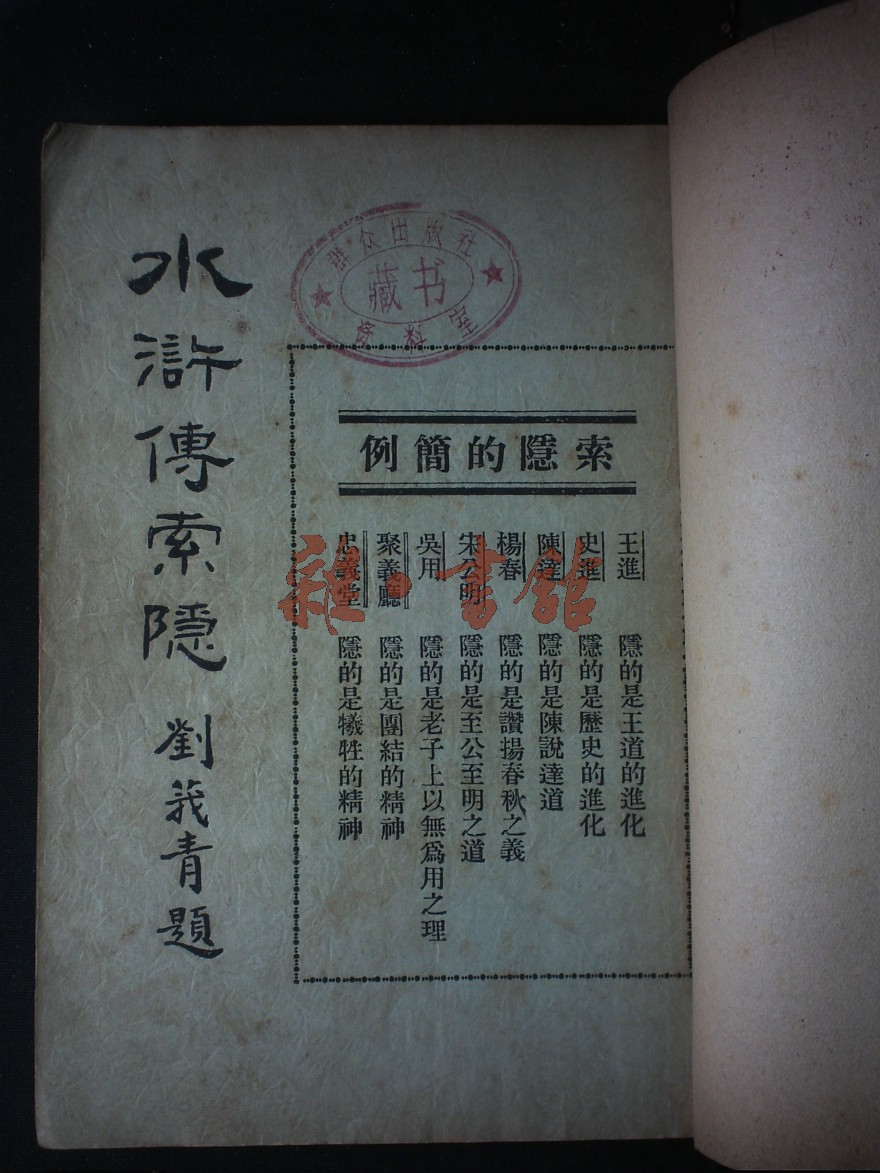 群众出版社
藏书
资料室
索隱的簡例
王進　隱的是王道的進化
史進　隱的是歷史的進化
陳達　隱的是陳說達道
楊春　隱的是讚揚春秋之義
宋公明　隱的是至公至明之道
吳用　隱的是老子上以無爲用之理
聚義廳　隱的是團結的精神
忠義堂　隱的是犧牲的精神
水滸傳索隱
劉莪青題